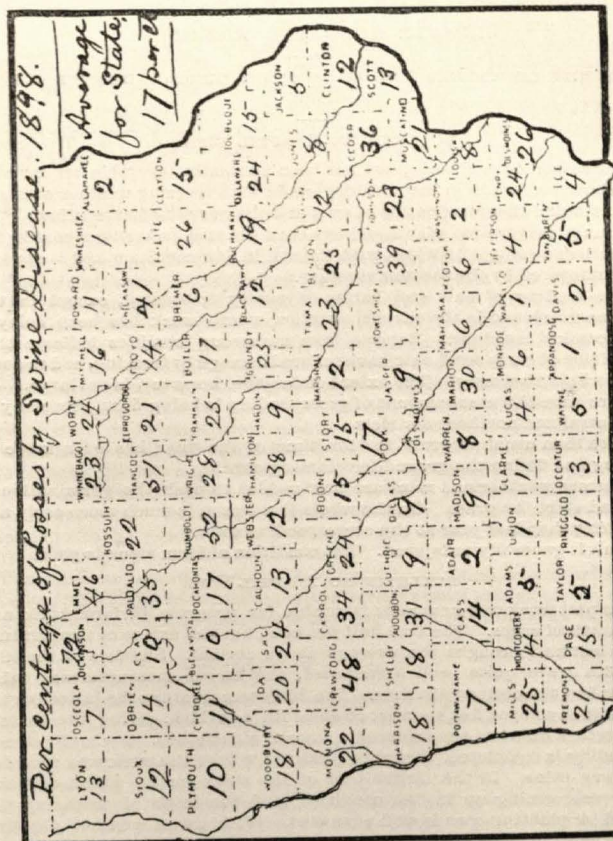 Per centage of Losses by Swine Disease. 1898.
Average
for State,
17 per ct
LYON
13
OSCEOLA
7
DICKINSON
EMMET
46
WINNEBAGO
23
WORTH
24
MITCHELL
16
HOWARD
11
WINNESHIEK
1
ALLAMAKEE
2
SIOUX
12
O'BRIEN
14
CLAY
10
PALO ALTO
35
KOSSUTH
22
HANCOCK
CERROGORDO
21
FLOYD
14
CHICKASAW
41
PLYMOUTH
10
CHEROKEE
11
BUENA VISTA
10
POCAHONTAS
17
HUMBOLDT
52
WRIGHT
28
FRANKLIN
25
BUTLER
17
BREMER
6
FAYETTE
26
CLAYTON
15
WOODBURY
18
IDA
20
SAC
24
CALHOUN
13
WEBSTER
12
HAMILTON
38
HARDIN
9
GRUNDY
25
BLACKHAWK
12
BUCHANAN
19
DELAWARE
24
DUBUQUE
15
MONONA
22
CRAWFORD
48
CARROLL
34
GREENE
24
BOONE
15
STORY
15
MARSHALL
12
TAMA
23
BENTON
25
LINN
12
JONES
8
JACKSON
5
HARRISON
18
SHELBY
18
AUDUBON
31
GUTHRIE
9
DALLAS
9
POLK
17
DES MOINES
JASPER
9
POWESHIEK
7
IOWA
39
JOHNSON
23
CEDAR
36
CLINTON
12
SCOTT
13
MUSCATINE
21
POTTAWATAMIE
7
CASS
14
ADAIR
2
MADISON
9
WARREN
8
MARION
30
MAHASKA
6
KEOKUK
6
WASHINGTON
2
LOUISA
8
MILLS
25
MONTGOMERY
4
ADAMS
5
UNION
1
CLARKE
11
LUCAS
4
MONROE
6
WAPELLO
1
JEFFERSON
4
HENRY
24
DESMOINES
26
FREMONT
21
PAGE
15
TAYLOR
5
RINGGOLD
11
DECATUR
3
WAYNE
5
APPANOOSE
1
DAVIS
2
VANBUREN
5
LEE
4